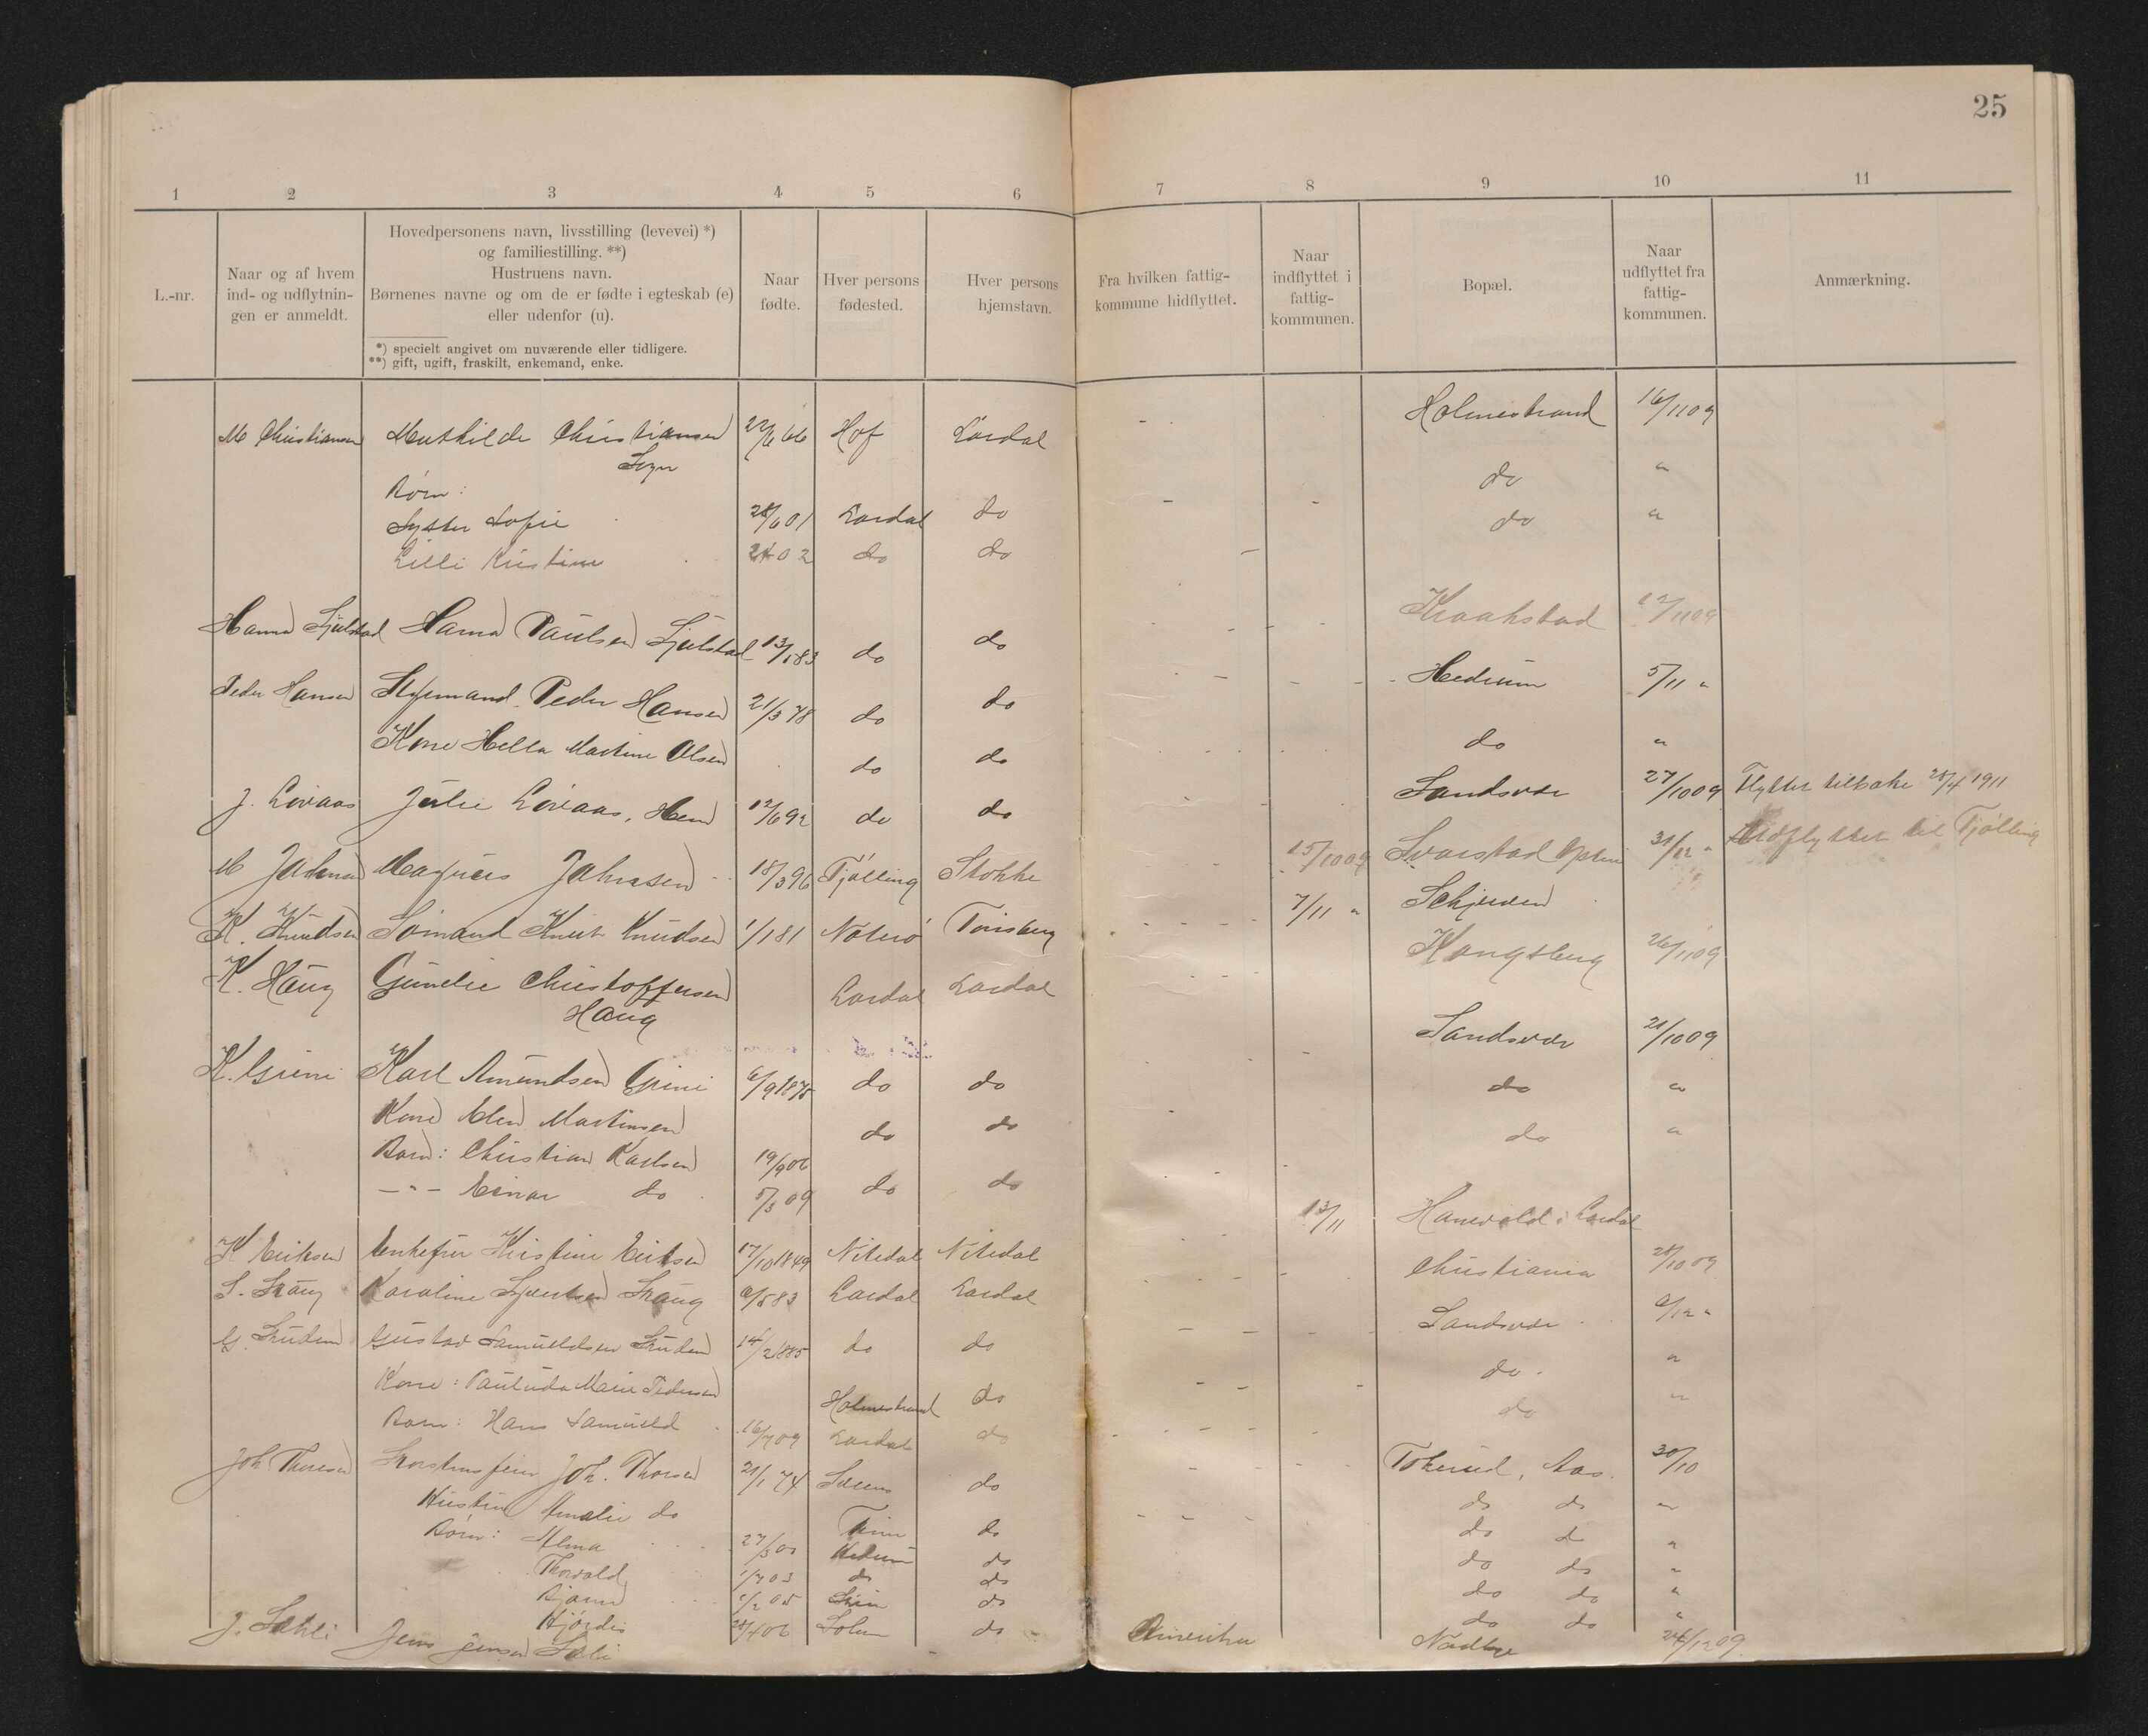 25
1 2 3 4 5 6 7 8 9 10 11
L.-nr.
Naar og af hvem ind- og udflytnin-gen er anmeldt.
Hovedpersonens navn, livsstilling (levevei) *)
og familiestilling. **)
Hustruens navn.
Børnenes navne og om de er fødte i egteskab (e)
eller udenfor (u).
*) specielt angivet om nuværende eller tidligere.
**) gift, ugift, fraskilt, enkemand, enke.
Naar fødte.
Hver persons fødested.
Hver persons hjemstavn.
Fra hvilken fattig-kommune hidflyttet.
Naar indflyttet i fattig-kommunen.
Bopæl.
Naar udflyttet fra fattig-kommunen.
Anmærkning.
M Christiansen Mathilde Christiansen 22/6 66 Hof Lardal - Holmestrand 16/11 09
Børn: do "
Sofie 28/6 01 Lardal do - - do "
Lilli Kristine 02 do do -
Hanna Hanna Paulsen 13/1 83 do do Kraakstad 12/11 09
Peder Hansen Peder Hansen 21/3 78 do do Hedrum 5/11 "
Kone Hella Martine Olsen do do do "
J. Løvaas Julie Løvaas, Hem 12/6 92 do do Sandsvær 27/10 09 Flyttet tilbake 28/4 1911
M Jahnsen Magnus Jahnsen 18/3 96 Tjølling Stokke 15/10 09 Svarstad 31/12 " Udflyttet til Tjølling
K. Knudsen Sømand Knut Knudsen 1/1 81 Nøterø Tønsberg 7/11 " Schjerven
K. Haug Gunelie Christoffersen Lardal Lardal Kongsberg 26/11 09
Haug
K. Grini Karl Amundsen Grini 6/9 1875 do do Sandsvær 21/10 09
Kone Martinsen do do do "
Barn: Christian Karlsen 19/9 06 do "
-"- Einar do 5/3 09 do do
K Eriksen Enkefru Kristine Eriksen 17/10 1849 Nitedal Nitedal 13/11 Hanevold i Lardal
S. Skaug Karoline Skaug 83 Lardal Lardal Christiania 28/10 09
G. Gustav Samuelsen 14/2 1885 do do Sandsvær "
Kone: Marie Pedersen Holmestrand do do "
Barn: Hans 16/7 09 Lardal do do "
Joh. Thoresen Skorstensfeier Joh. Thoresen 21/1 74 do Tokerud, Aas. 30/10
Amalie do do do do "
Børn: Alma 27/3 00 Hedrum do do do "
Thorvald 1/7 03 do do do do "
Bjarne 05 do do do "
Hjørdis 06 Solum do do do "
J. Jens Jensen Amerika 09